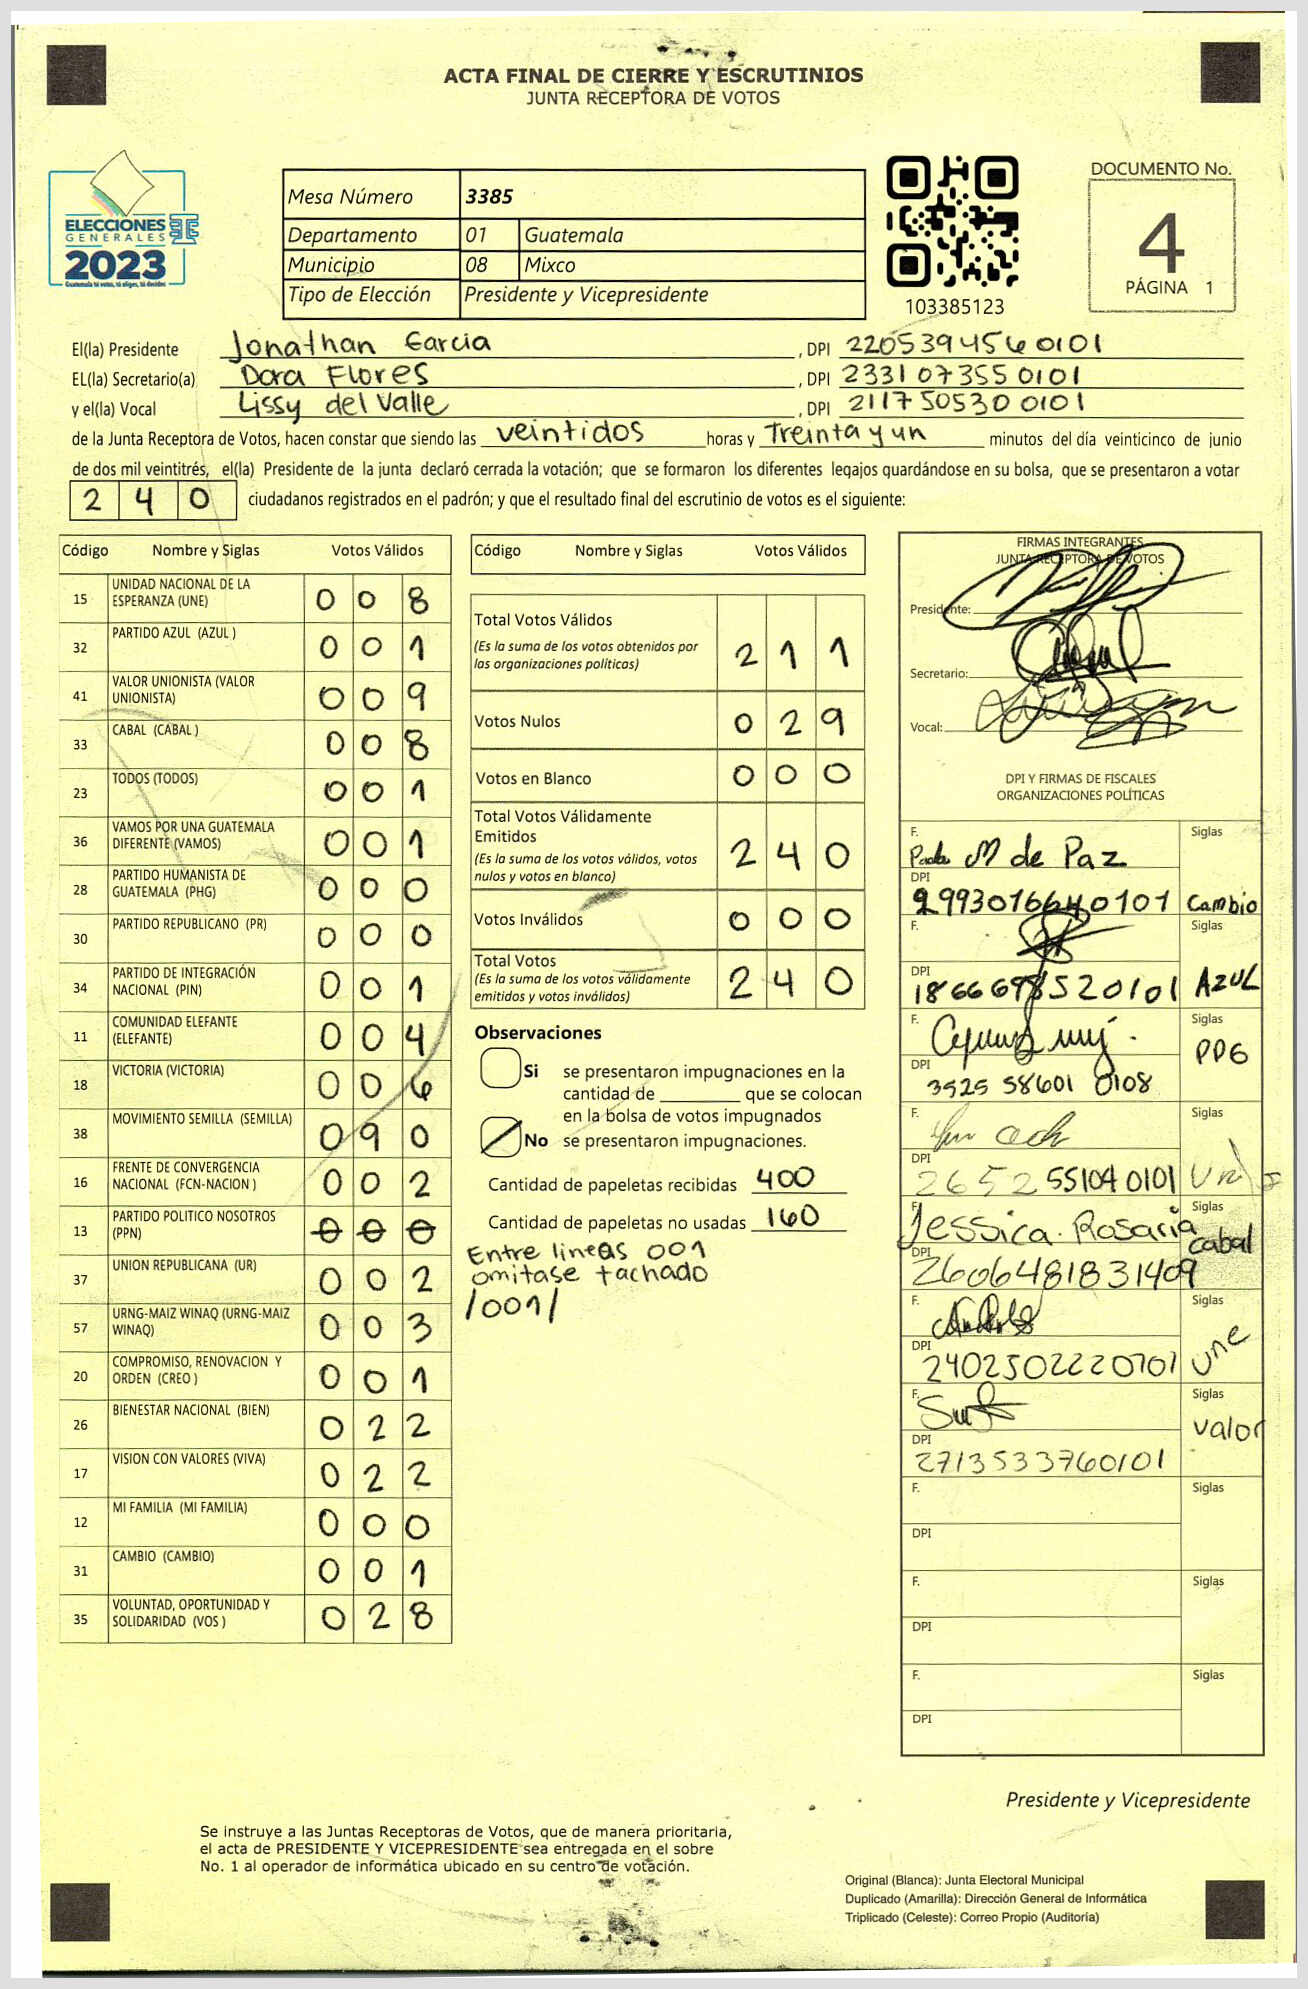 ACTA FINAL DE CIERRE Y ESCRUTINIOS
JUNTA RECEPTORA DE VOTOS
ELECCIONES
GENERALES
2023
Guatemala tú votas, tú eliges, tú decides
Mesa Número 3385
Departamento 01 Guatemala
Municipio 08 Mixco
Tipo de Elección Presidente y Vicepresidente
103385123
DOCUMENTO No.
4
PÁGINA 1
El(la) Presidente Jonathan Garcia , DPI 2205394560101
EL(la) Secretario(a) Dora Flores , DPI 2331073550101
y el(la) Vocal Lissy del Valle , DPI 2117505300101
de la Junta Receptora de Votos, hacen constar que siendo las veintidos horas y Treinta y un minutos del día veinticinco de junio
de dos mil veintitrés, el(la) Presidente de la junta declaró cerrada la votación; que se formaron los diferentes legajos guardándose en su bolsa, que se presentaron a votar
240 ciudadanos registrados en el padrón; y que el resultado final del escrutinio de votos es el siguiente:
Código Nombre y Siglas Votos Válidos
15 UNIDAD NACIONAL DE LA ESPERANZA (UNE) 0 0 8
32 PARTIDO AZUL (AZUL ) 0 0 1
41 VALOR UNIONISTA (VALOR UNIONISTA) 0 0 9
33 CABAL (CABAL ) 0 0 8
23 TODOS (TODOS) 0 0 1
36 VAMOS POR UNA GUATEMALA DIFERENTE (VAMOS) 0 0 1
28 PARTIDO HUMANISTA DE GUATEMALA (PHG) 0 0 0
30 PARTIDO REPUBLICANO (PR) 0 0 0
34 PARTIDO DE INTEGRACIÓN NACIONAL (PIN) 0 0 1
11 COMUNIDAD ELEFANTE (ELEFANTE) 0 0 4
18 VICTORIA (VICTORIA) 0 0 6
38 MOVIMIENTO SEMILLA (SEMILLA) 0 9 0
16 FRENTE DE CONVERGENCIA NACIONAL (FCN-NACION ) 0 0 2
13 PARTIDO POLITICO NOSOTROS (PPN) 0 0 0
37 UNION REPUBLICANA (UR) 0 0 2
57 URNG-MAIZ WINAQ (URNG-MAIZ WINAQ) 0 0 3
20 COMPROMISO, RENOVACION Y ORDEN (CREO ) 0 0 1
26 BIENESTAR NACIONAL (BIEN) 0 2 2
17 VISION CON VALORES (VIVA) 0 2 2
12 MI FAMILIA (MI FAMILIA) 0 0 0
31 CAMBIO (CAMBIO) 0 0 1
35 VOLUNTAD, OPORTUNIDAD Y SOLIDARIDAD (VOS ) 0 2 8
Código Nombre y Siglas Votos Válidos
Total Votos Válidos 2 1 1
(Es la suma de los votos obtenidos por
las organizaciones políticas)
Votos Nulos 0 2 9
Votos en Blanco 0 0 0
Total Votos Válidamente
Emitidos 2 4 0
(Es la suma de los votos válidos, votos
nulos y votos en blanco)
Votos Inválidos 0 0 0
Total Votos 2 4 0
(Es la suma de los votos válidamente
emitidos y votos inválidos)
Observaciones
Si se presentaron impugnaciones en la
cantidad de ________ que se colocan
en la bolsa de votos impugnados
No se presentaron impugnaciones.
Cantidad de papeletas recibidas 400
Cantidad de papeletas no usadas 160
Entre lineas 001
omitase tachado
/001/
FIRMAS INTEGRANTES
JUNTA RECEPTORA DE VOTOS
Presidente:
Secretario:
Vocal:
DPI Y FIRMAS DE FISCALES
ORGANIZACIONES POLÍTICAS
F. M de Paz Siglas
DPI 2993016640101 Cambio
F. Siglas
DPI 1866698520101 AZUL
F. Siglas
DPI 3525 58601 0108 PPG
F. Siglas
DPI 2652 551040101
F. Jessica. Rosaria Siglas
DPI 2606481831409 cabal
F. Siglas
DPI 2402502220701 une
F. Siglas
DPI 2713533760101 valor
F. Siglas
DPI
F. Siglas
DPI
F. Siglas
DPI
Presidente y Vicepresidente
Se instruye a las Juntas Receptoras de Votos, que de manera prioritaria,
el acta de PRESIDENTE Y VICEPRESIDENTE sea entregada en el sobre
No. 1 al operador de informática ubicado en su centro de votación.
Original (Blanca): Junta Electoral Municipal
Duplicado (Amarilla): Dirección General de Informática
Triplicado (Celeste): Correo Propio (Auditoría)